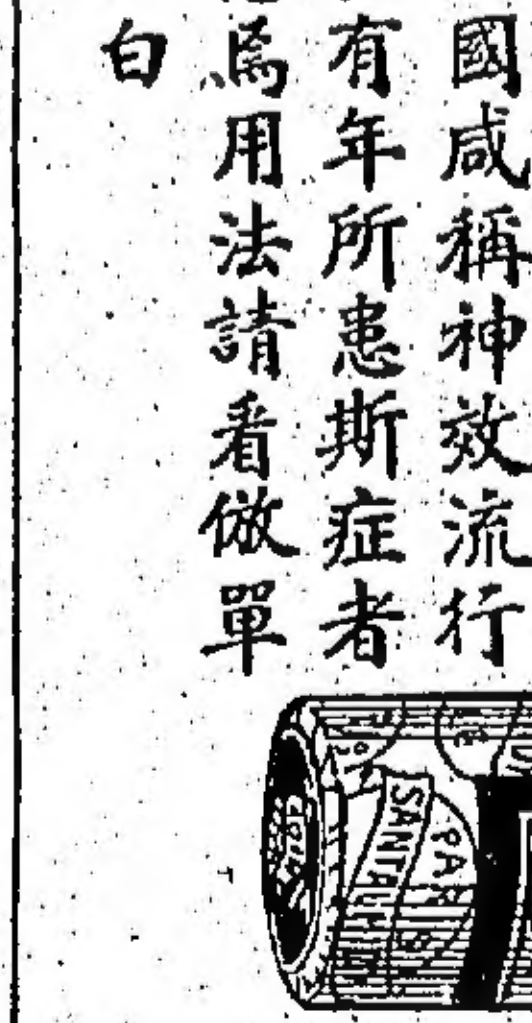 國咸稱神效流行
有年所患斯症者
焉用法請看倣單
白
PARIS
SANTAL MIDY